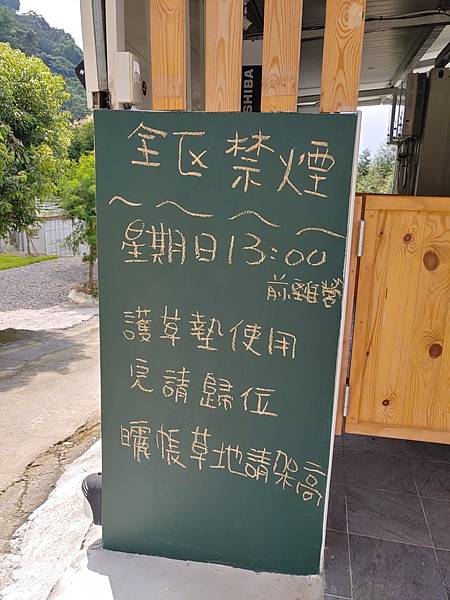 全区禁煙
星期日13:00
前離營
護草墊使用
完請歸位
曬帳草地請架高
SHIBA